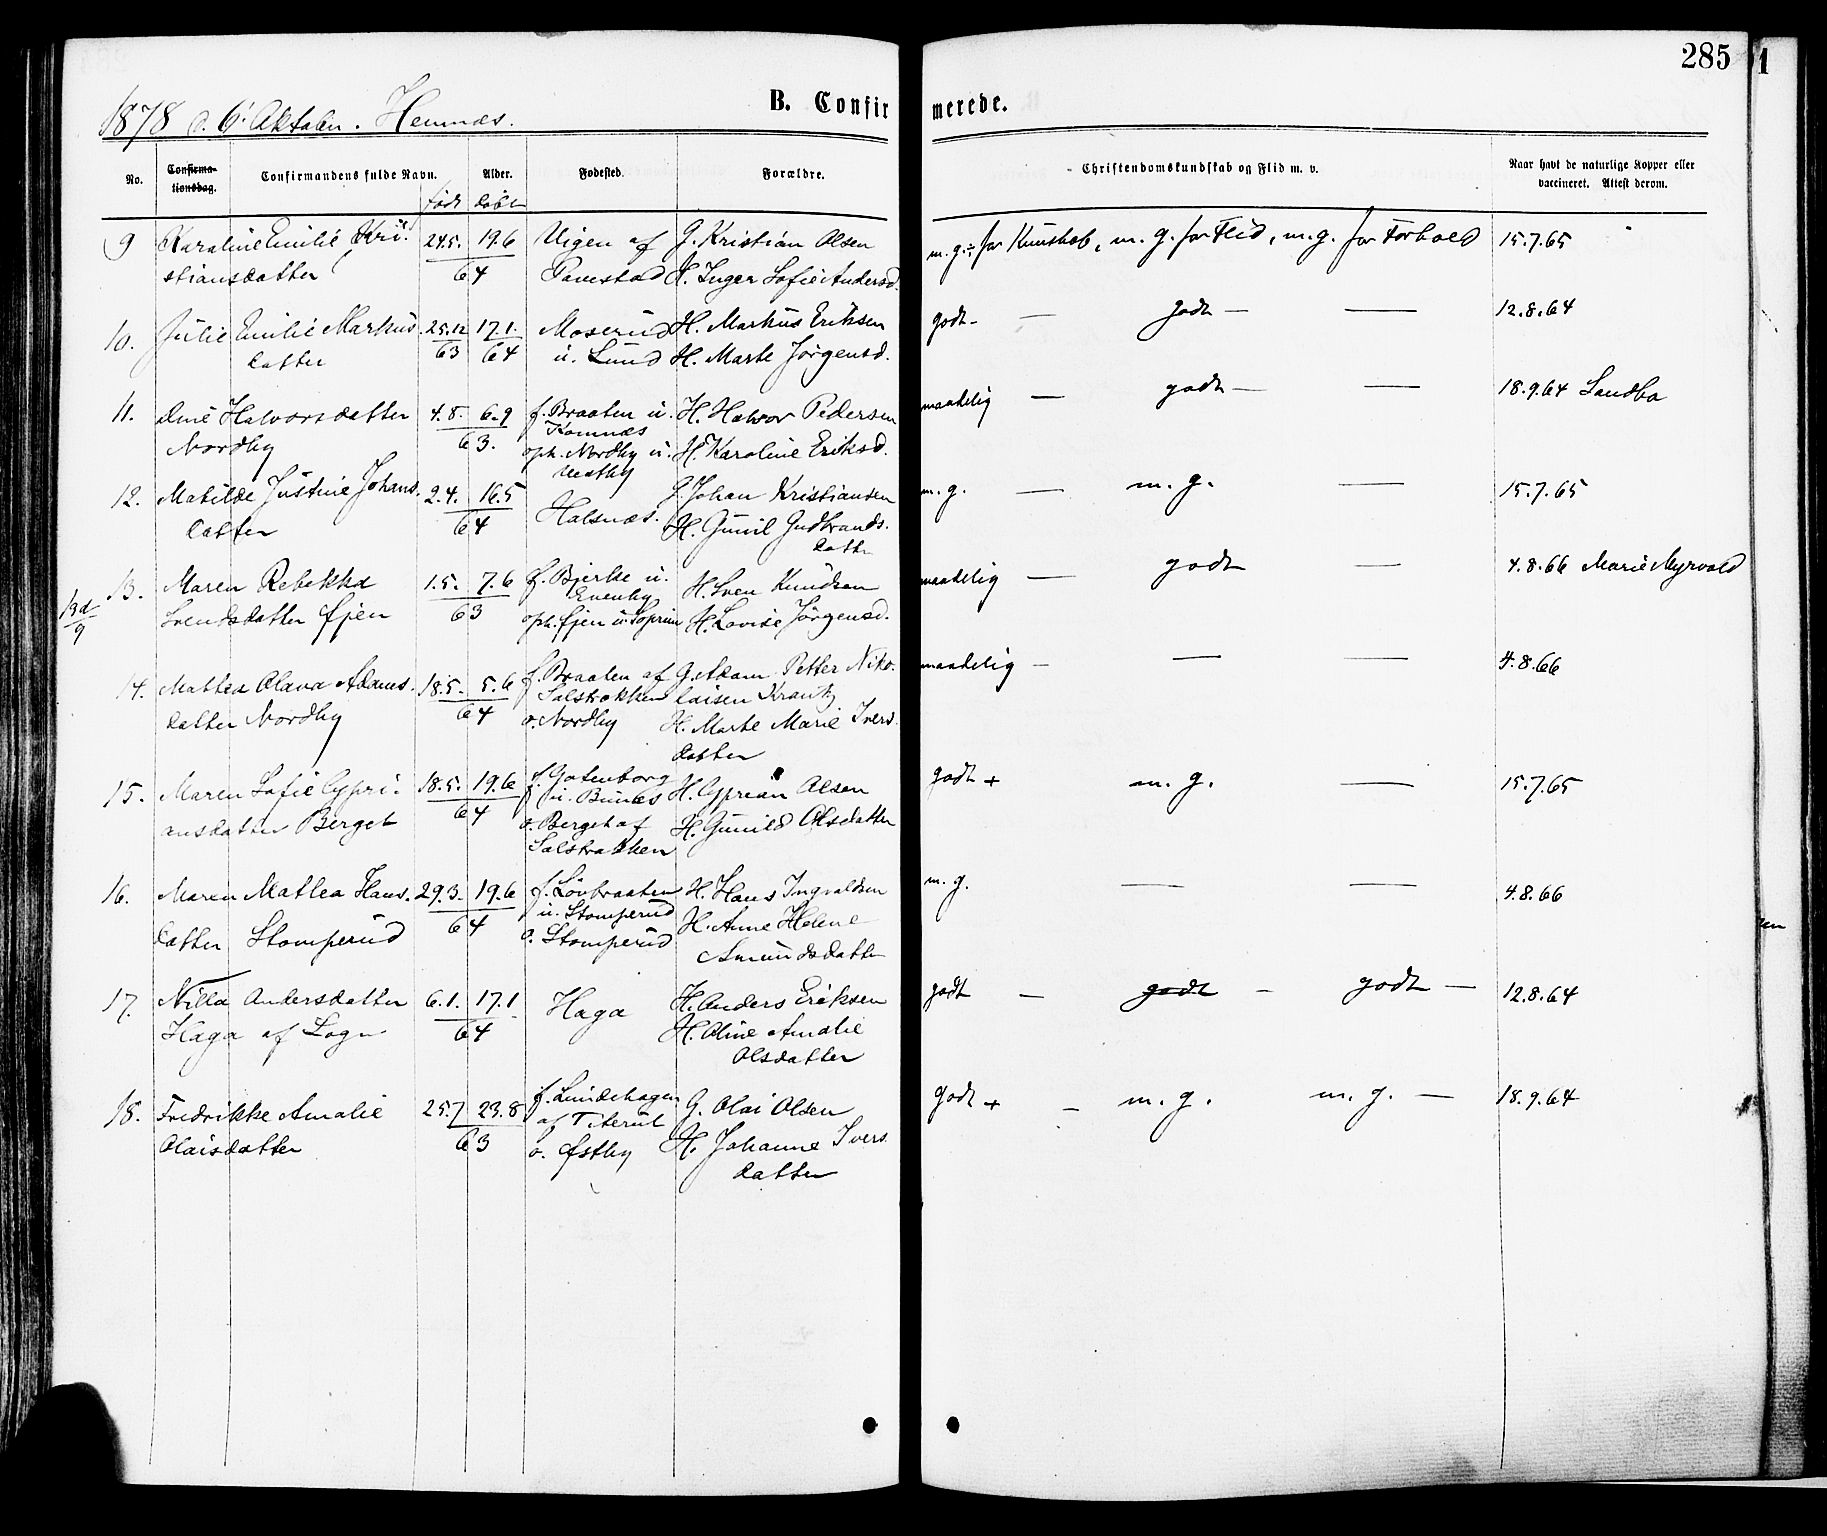 285
1
B. Confirmerede.
1878 d. 6' Oktober. Hemnæs.
No. Confirmationsdag. Confirmandens fulde Navn. Alder. Fødested. Forældre. Christendomskundskab og Flid m. v. Naar havt de naturlige Kopper eller vaccineret. Attest derom.
født døbt
9 Karoline Emilie Kri- 24.5. 19.6 Vigen af G. Kristian Olsen m.g.÷ for Kundskab, m.g. for Flid, m.g. for Forhold 15.7.65
stiansdatter 64 H. Inger Sofie Andersd.
10. Julie Emilie Markus 25.12 17.1. Moserud H. Markus Eriksen godt - — godt — — 12.8.64
datter 63 64 u. Lund H. Marte Jørgensd.
11. Halvorsdatter 4.8. 6.9 f. Braaten u. H. Halvor Pedersen maadelig — godt — — 18.9.64 Sandbo
Nordby 63. Komnæs
oph. Nordby u. H. Karoline Eriksd.
12. Matilde Justine Johans. 2.4. 16.5 G. Johan Kristiansen m.g. — m.g. — 15.7.65
datter 64 Halsnæs. H. Gunil Gudbrands.
datter
13. Maren Rebekka 1.5. 7.6 f. Bjerke u. H. Sven Knudsen maadelig — godt — 4.8.66 Marie Myrvold
Evenby
Svendsdatter 63 H. Lovise Jørgensd.
14. Mathea Olava Adams. 18.5. 5.6 f. Braaten af G. Adam Petter Niko- maadelig — — — 4.8.66
Salstrækken laisen Krantz
datter Nordby 64 o. Nordby H. Marte Marie Ivers
datter
15. Maren Sofie Cypri- 18.5. 19.6 f. Gotenborg H. Cyprian Olsen godt + m.g. — 15.7.65
u. Bunes
ansdatter Berget 64 o. Berget af H. Gunild Olsdatter
Salstrækken
16. Maren Mathea Hans. 29.3. 19.6 f. Løvbraaten H. Hans Ingvaldsen m.g. — — 4.8.66
u. Stomperud
datter Stomperud 64 o. Stomperud H. Anne Helene
Amundsdatter
17. Nilla Andersdatter 6.1. 17.1 Haga H. Anders Eriksen godt — godt — godt — 12.8.64
Haga af Sogn 64 H. Oline Amalie
Olsdatter
18. Fredrikke Amalie 25.7 23.8 f. Lundehagen G. Olai Olsen godt + — m.g. m.g. — 18.9.64
Olaisdatter 63 o. Østby H. Johanne Ivers
datter